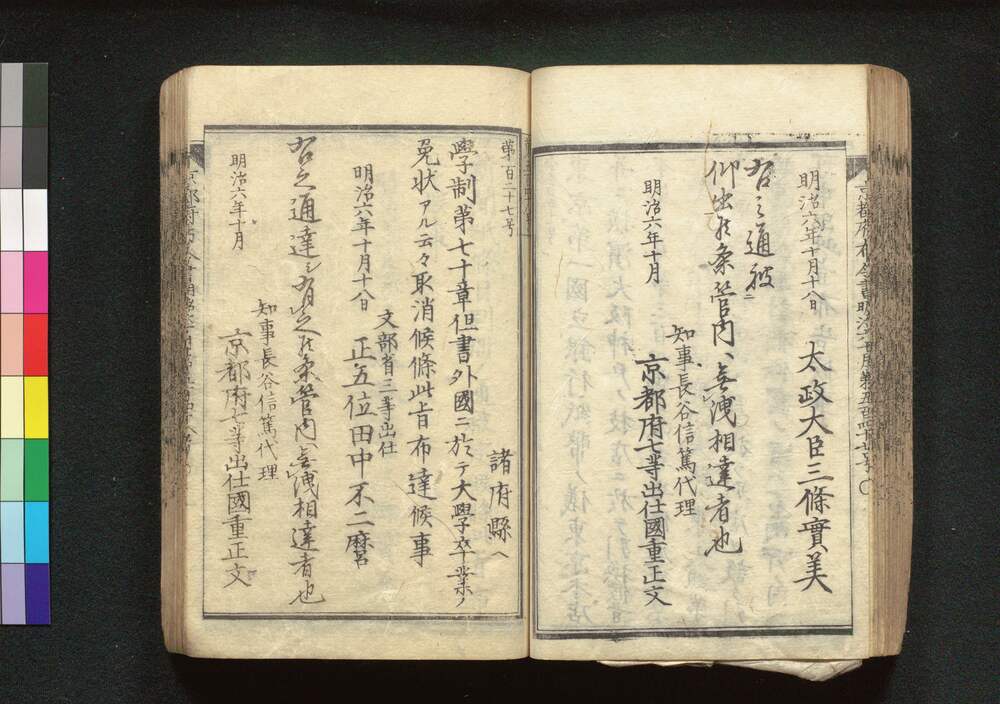 明治六年十月十八日
太政大臣三條實美
右之通被
仰出候条管内ヘ無洩相達者也
明治六年十月
知事長谷信篤代理
京都府七等出仕國重正文
第百二十七号
諸府縣ヘ
學制第七十章但書外國ニ於テ大學卒業ノ
免状アル云々取消候條此旨布達候事
明治六年十月十八日
文部省三等出仕
正五位田中不二麿
右之通達シ有之候条管内ヘ無洩相達者也
明治六年十月
知事長谷信篤代理
京都府七等出仕國重正文